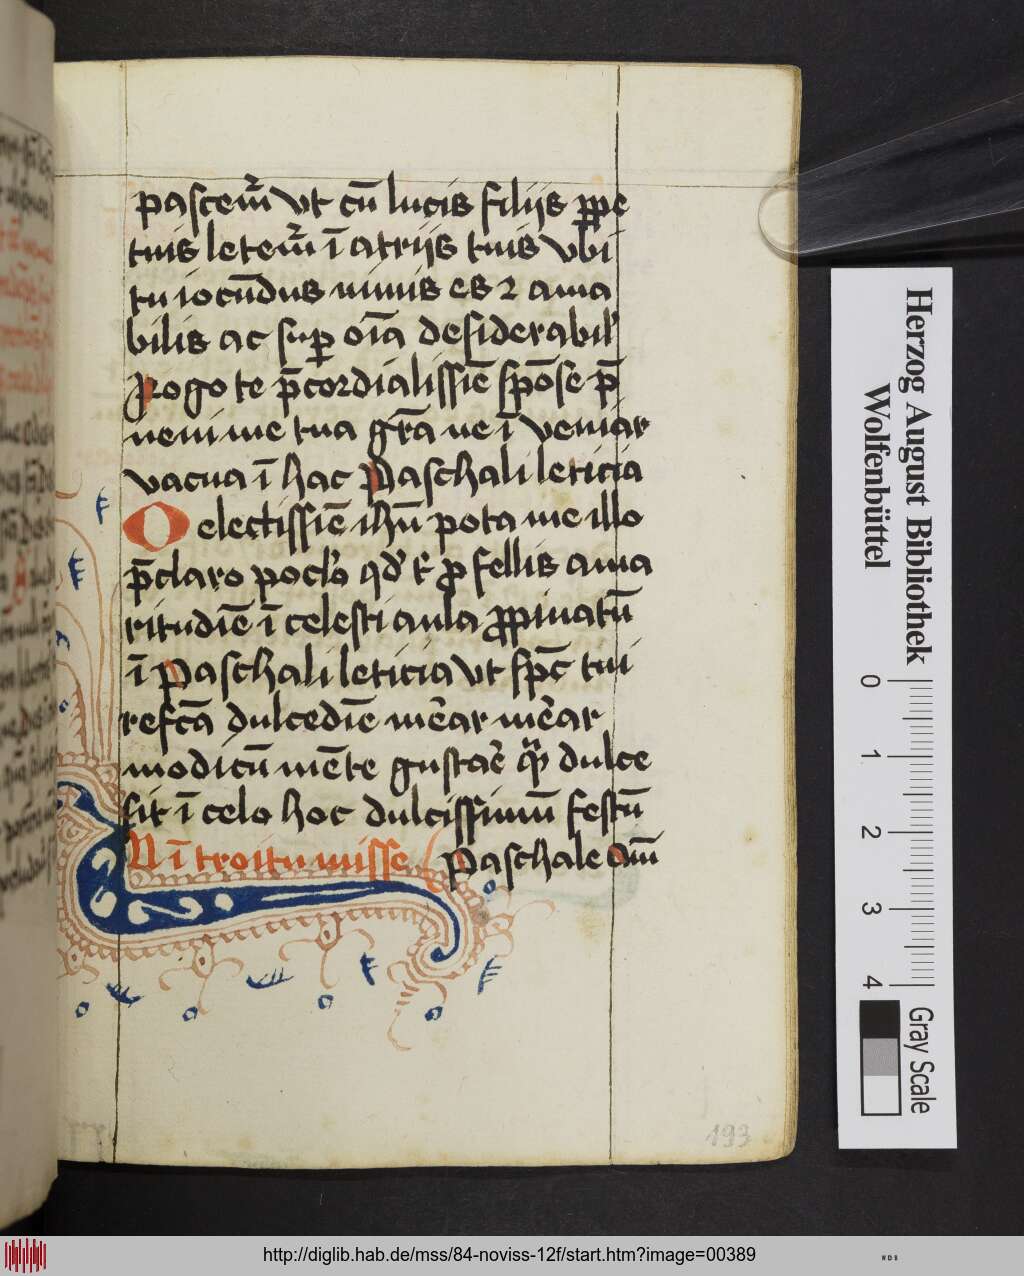 pascem̄ vt cū lucis filijs ꝑpe
tuis letem̄ ī atrijs tuis vbi
tu iocūdus nimis es ⁊ ama
bilis ac suꝑ oīa desiderabil'
Rogo te p̄cordialissīe spōse p̄
ueni me tua gr̄a ne ī veniar
vacua ī hac Paschali leticia
O electissīe ihū pota me illo
p̄claro poclo qd' ē ꝓ fellis ama
ritudīe ī celesti aula ꝓpinatū
ī Paschali leticia vt sp̄c tui
refcā dulcedīe mēar mēar
modicū mēte gustar̄ qm̄ dulce
sit ī celo hoc dulcissimū festū
N ītroitu misse Paschale am̄
193
Herzog August Bibliothek
Wolfenbüttel
0 1 2 3 4
Gray Scale
http://diglib.hab.de/mss/84-noviss-12f/start.htm?image=00389